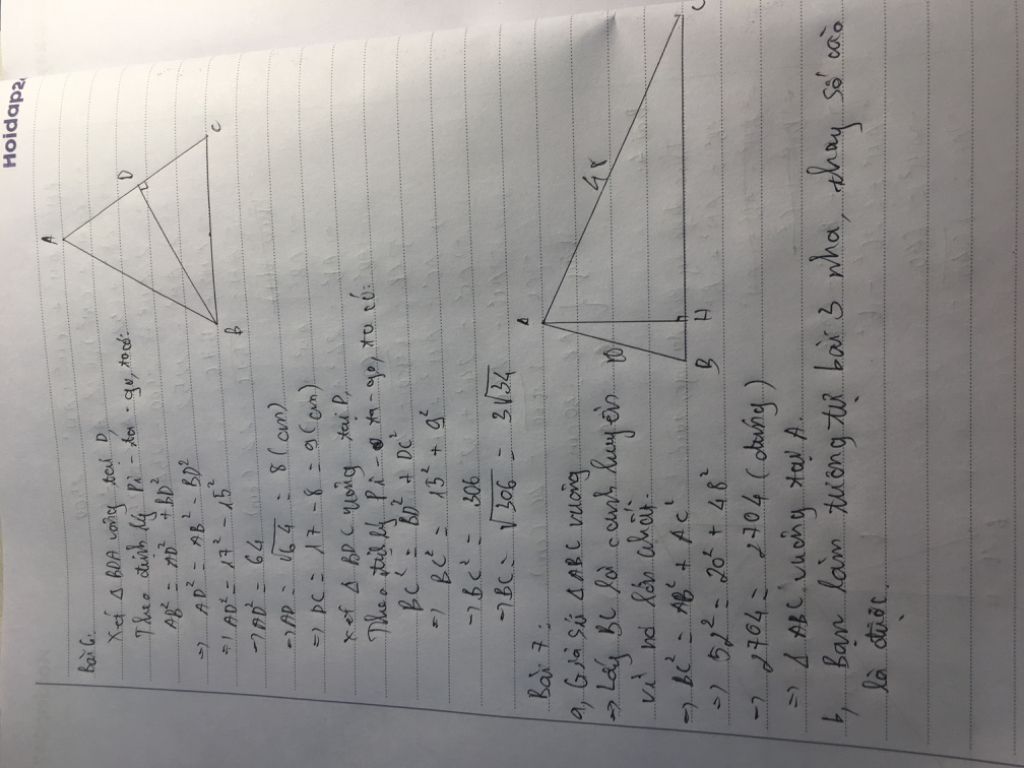 Hoidap2
Bài 6.
Xét Δ BDA vuông tại D,
Theo định lý Pi - ta - go, ta có:
AB² = AD² + BD²
=> AD² = AB² - BD²
=> AD² = 17² - 15²
-> AD² = 64
-> AD = √64 = 8 (cm)
=> DC = 17 - 8 = 9 (cm)
Xét Δ BDC vuông tại D,
Theo định lý Pi - ta - go, ta có:
BC² = BD² + DC²
=> BC² = 15² + 9²
-> BC² = 306
-> BC = √306 = 3√34
A
D
C
B
Bài 7.
a, Giả sử Δ ABC vuông
-> Lấy BC là cạnh huyền
vì nó lớn nhất.
=> BC² = AB² + AC²
=> 52² = 20² + 48²
-> 2704 = 2704 (đúng)
=> Δ ABC vuông tại A.
A
B
H
C
b, Bạn làm tương tự bài 3 nha, thay số vào
là được.